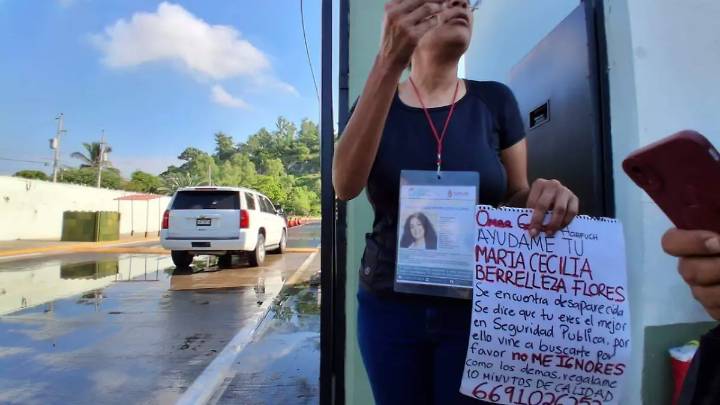 Omar G Harfuch
AYUDAME TU
MARIA CECILIA
BERRELLEZA FLORES
Se encuentra desaparecida
Se dice que tu eres el mejor
en Seguridad Publica, por
ello vine a buscarte por
favor no ME IGNORES
como los demas, regalame
10 MINUTOS DE CALIDAD